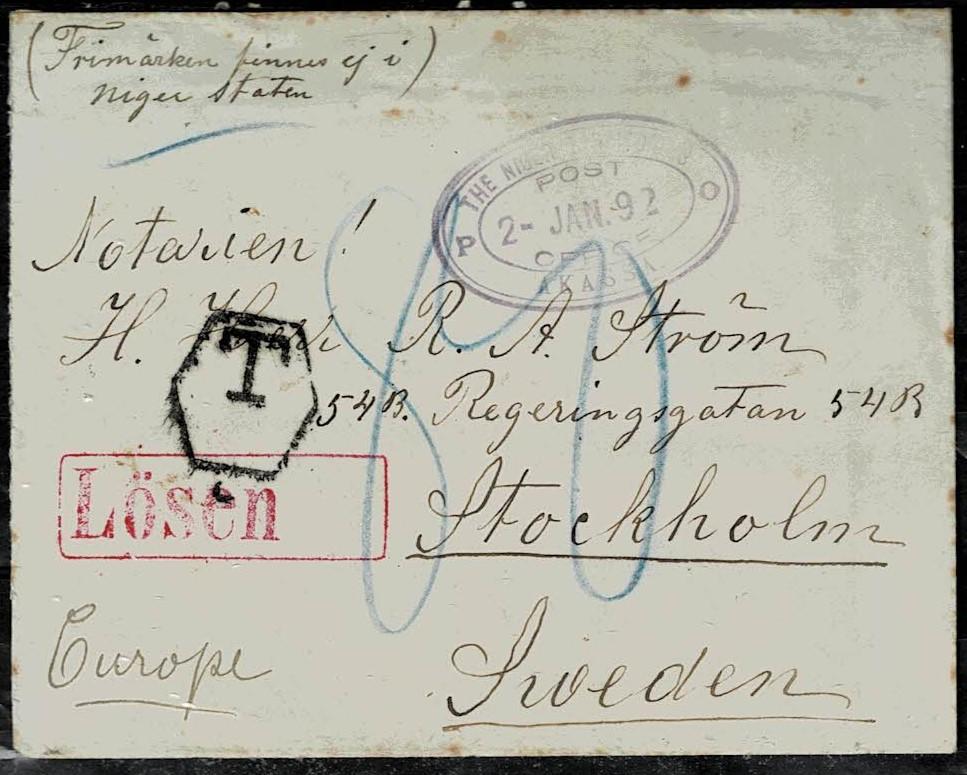 (Frimärken finnes ej i
niger Staten)
THE NIGER
POST
P O
2- JAN. 92
OFFICE
AKASSA
Notarien!
H. Herr R. A. Ström
T
54B. Regeringsgatan 54B
Lösen
80
Stockholm
Europe
Sweden